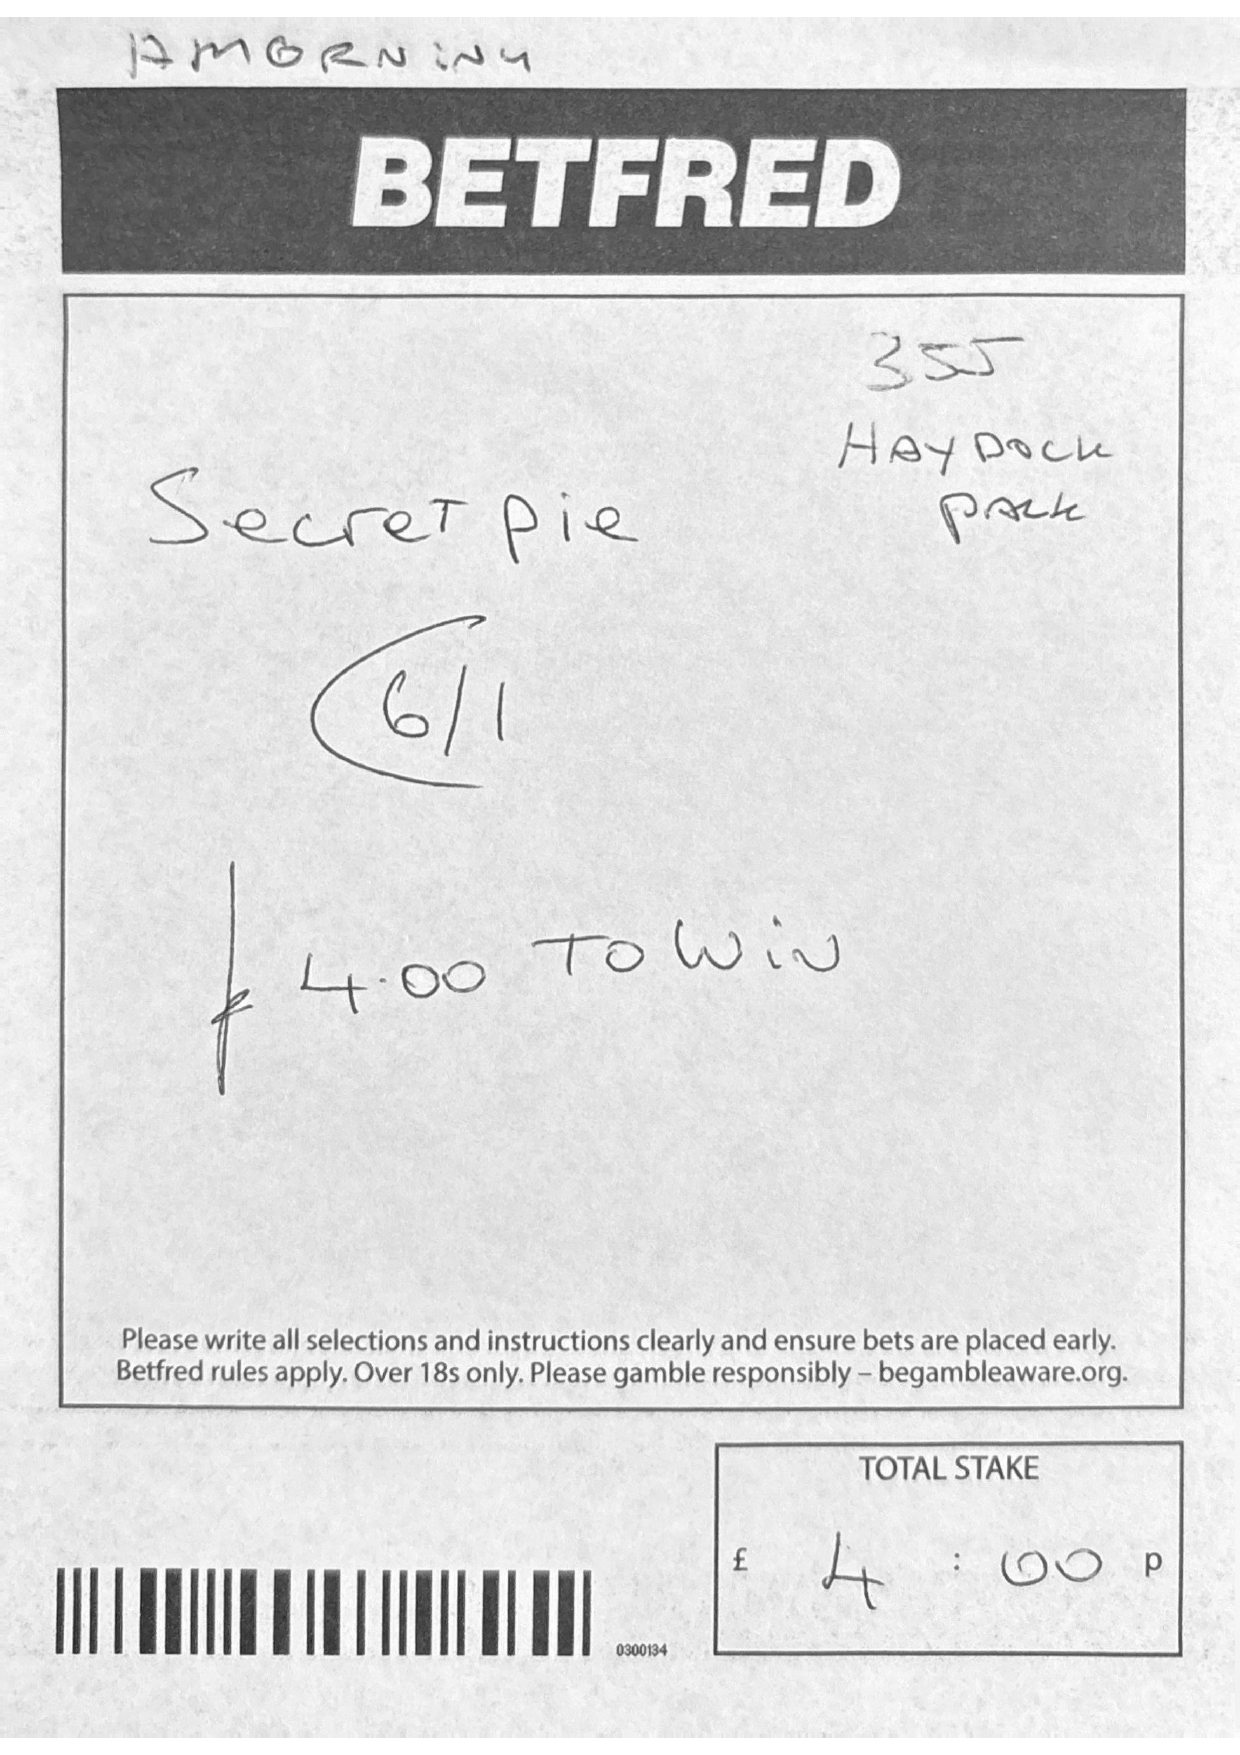 AMORNING
BETFRED
355
HAYDOCK
PARK
Secret pie
6/1
£4.00 TO WIN
Please write all selections and instructions clearly and ensure bets are placed early.
Betfred rules apply. Over 18s only. Please gamble responsibly – begambleaware.org.
TOTAL STAKE
£ 4 : 00 p
0300134